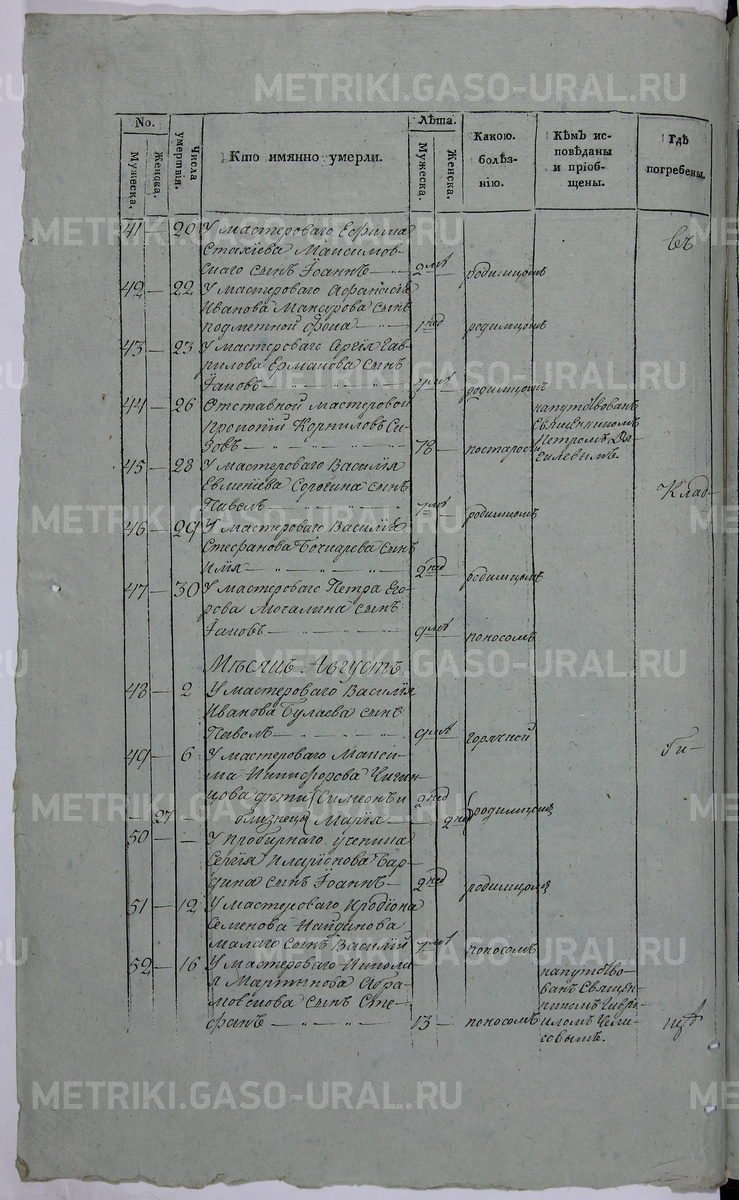 METRIKI.GASO-URAL.RU
No. Числа умертвія. Кто имянно умерли. Лѣта. Какою болѣзнію. Кѣмъ исповѣданы и пріобщены. Гдѣ погребены.
Мужеска. Женска. Мужеска. Женска.
41 — 20 У мастероваго Ефима
Стахіева Максимов-
скаго сынъ Іоаннъ — 2 мѣ — родимцомъ
въ
42 — 22 У мастероваго Афанасія
Иванова Мансурова сынъ
подметной Фока — 1 нед — родимцомъ
43 — 23 У мастероваго Сергія Гав-
рилова Ермакова сынъ
Іаковъ — мѣ — родимцомъ
44 — 26 Отставной мастеровой
Прокопій Корниловъ Си-
зовъ — 78 — постарости
напутствованъ
Священникомъ
Петромъ
45 — 28 У мастероваго Василія
Евменіева Сорокина сынъ
Павелъ — мѣ — родимцомъ
Клад-
46 — 29 У мастероваго Василія
Стефанова Бочкарева сынъ
Илія — 2 нед — родимцомъ
47 — 30 У мастероваго Петра Его-
рова Мочалина сынъ
Іаковъ — 9 мѣ — поносомъ
Мѣсяцъ Августъ
48 — 2 У мастероваго Василія
Иванова Булаева сынъ
Павелъ — 9 мѣ — горячкой
би-
49 — 6 У мастероваго Макси-
ма Никифорова
дѣти Симеонъ и 2 нед
— 27 близнеца Марія — 2 нед родимцомъ
50 — — У пробирнаго ученика
Сергія Иларіонова Бар-
дина сынъ Іоаннъ — 2 нед — родимцомъ
51 — 12 У мастероваго Иродіона
Семенова Найданова
малаго сынъ Василій мѣ — поносомъ
52 — 16 У мастероваго Никола-
я Мартынова Абра-
мовскова сынъ Сте-
фанъ — 13 — поносомъ
напутство-
ванъ Священ-
никомъ Гаври-
иломъ
щѣ